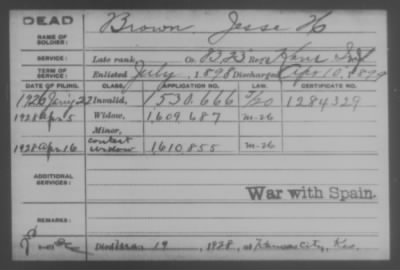 DEAD
Brown Jesse H
NAME OF SOLDIER:
SERVICE: Late rank, Co. B, 23 Reg't Kans Inf
TERM OF SERVICE: Enlisted July, 1898 Discharged Apr 10, 1899
DATE OF FILING. CLASS. APPLICATION NO. LAW. CERTIFICATE NO.
1926 22 Invalid, 1530.666 1284329
1928 Apr 5 Widow, 1,609,687 M-26
Minor,
1928 Apr 16 contest widow 1,610,855 M-26
ADDITIONAL SERVICES:
War with Spain.
REMARKS:
Died Mar 19, 1928, at Kansas City, Kas.